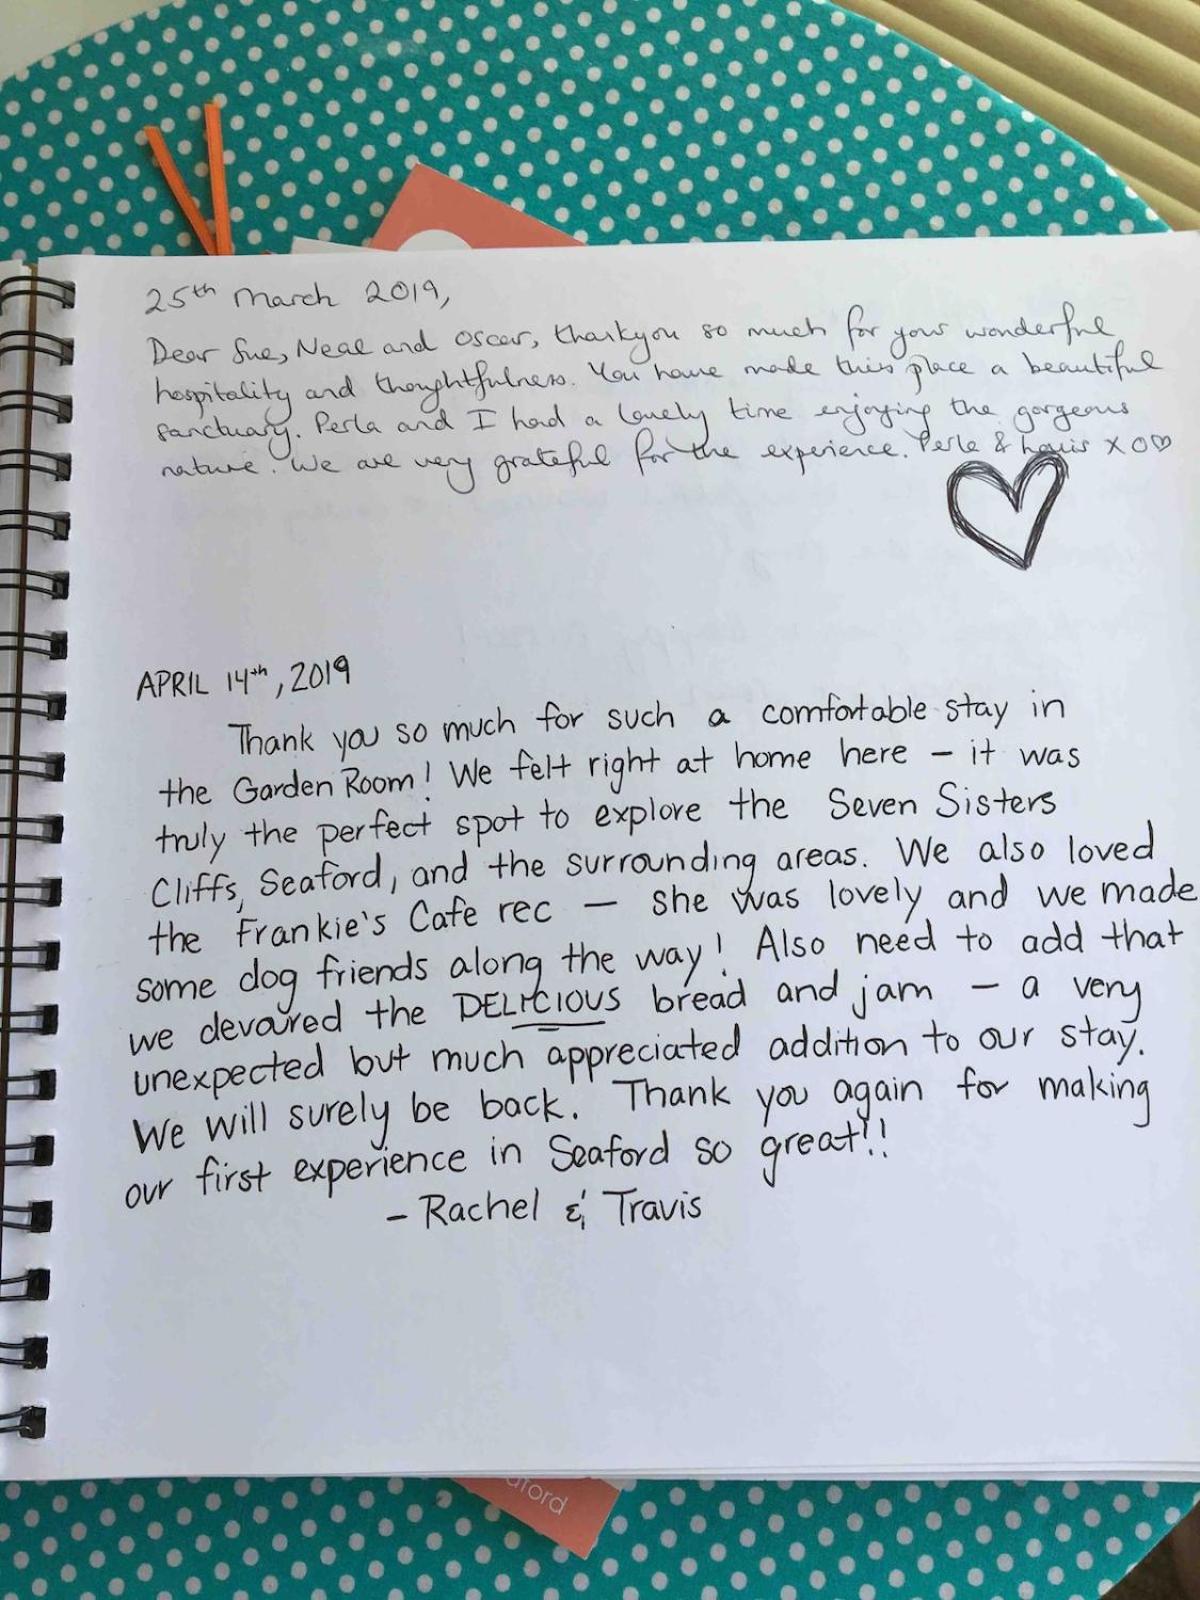 25th March 2019,
Dear Sue, Neal and Oscar, thankyou so much for your wonderful
hospitality and thoughtfulness. You have made this place a beautiful
sanctuary. Perla and I had a lovely time enjoying the gorgeous
nature. We are very grateful for the experience. Perla & Louis XO♡
APRIL 14th, 2019
Thank you so much for such a comfortable stay in
the Garden Room! We felt right at home here – it was
truly the perfect spot to explore the Seven Sisters
Cliffs, Seaford, and the surrounding areas. We also loved
the Frankie's Cafe rec – she was lovely and we made
some dog friends along the way! Also need to add that
we devoured the DELICIOUS bread and jam – a very
unexpected but much appreciated addition to our stay.
We will surely be back. Thank you again for making
our first experience in Seaford so great!!
– Rachel & Travis
aford